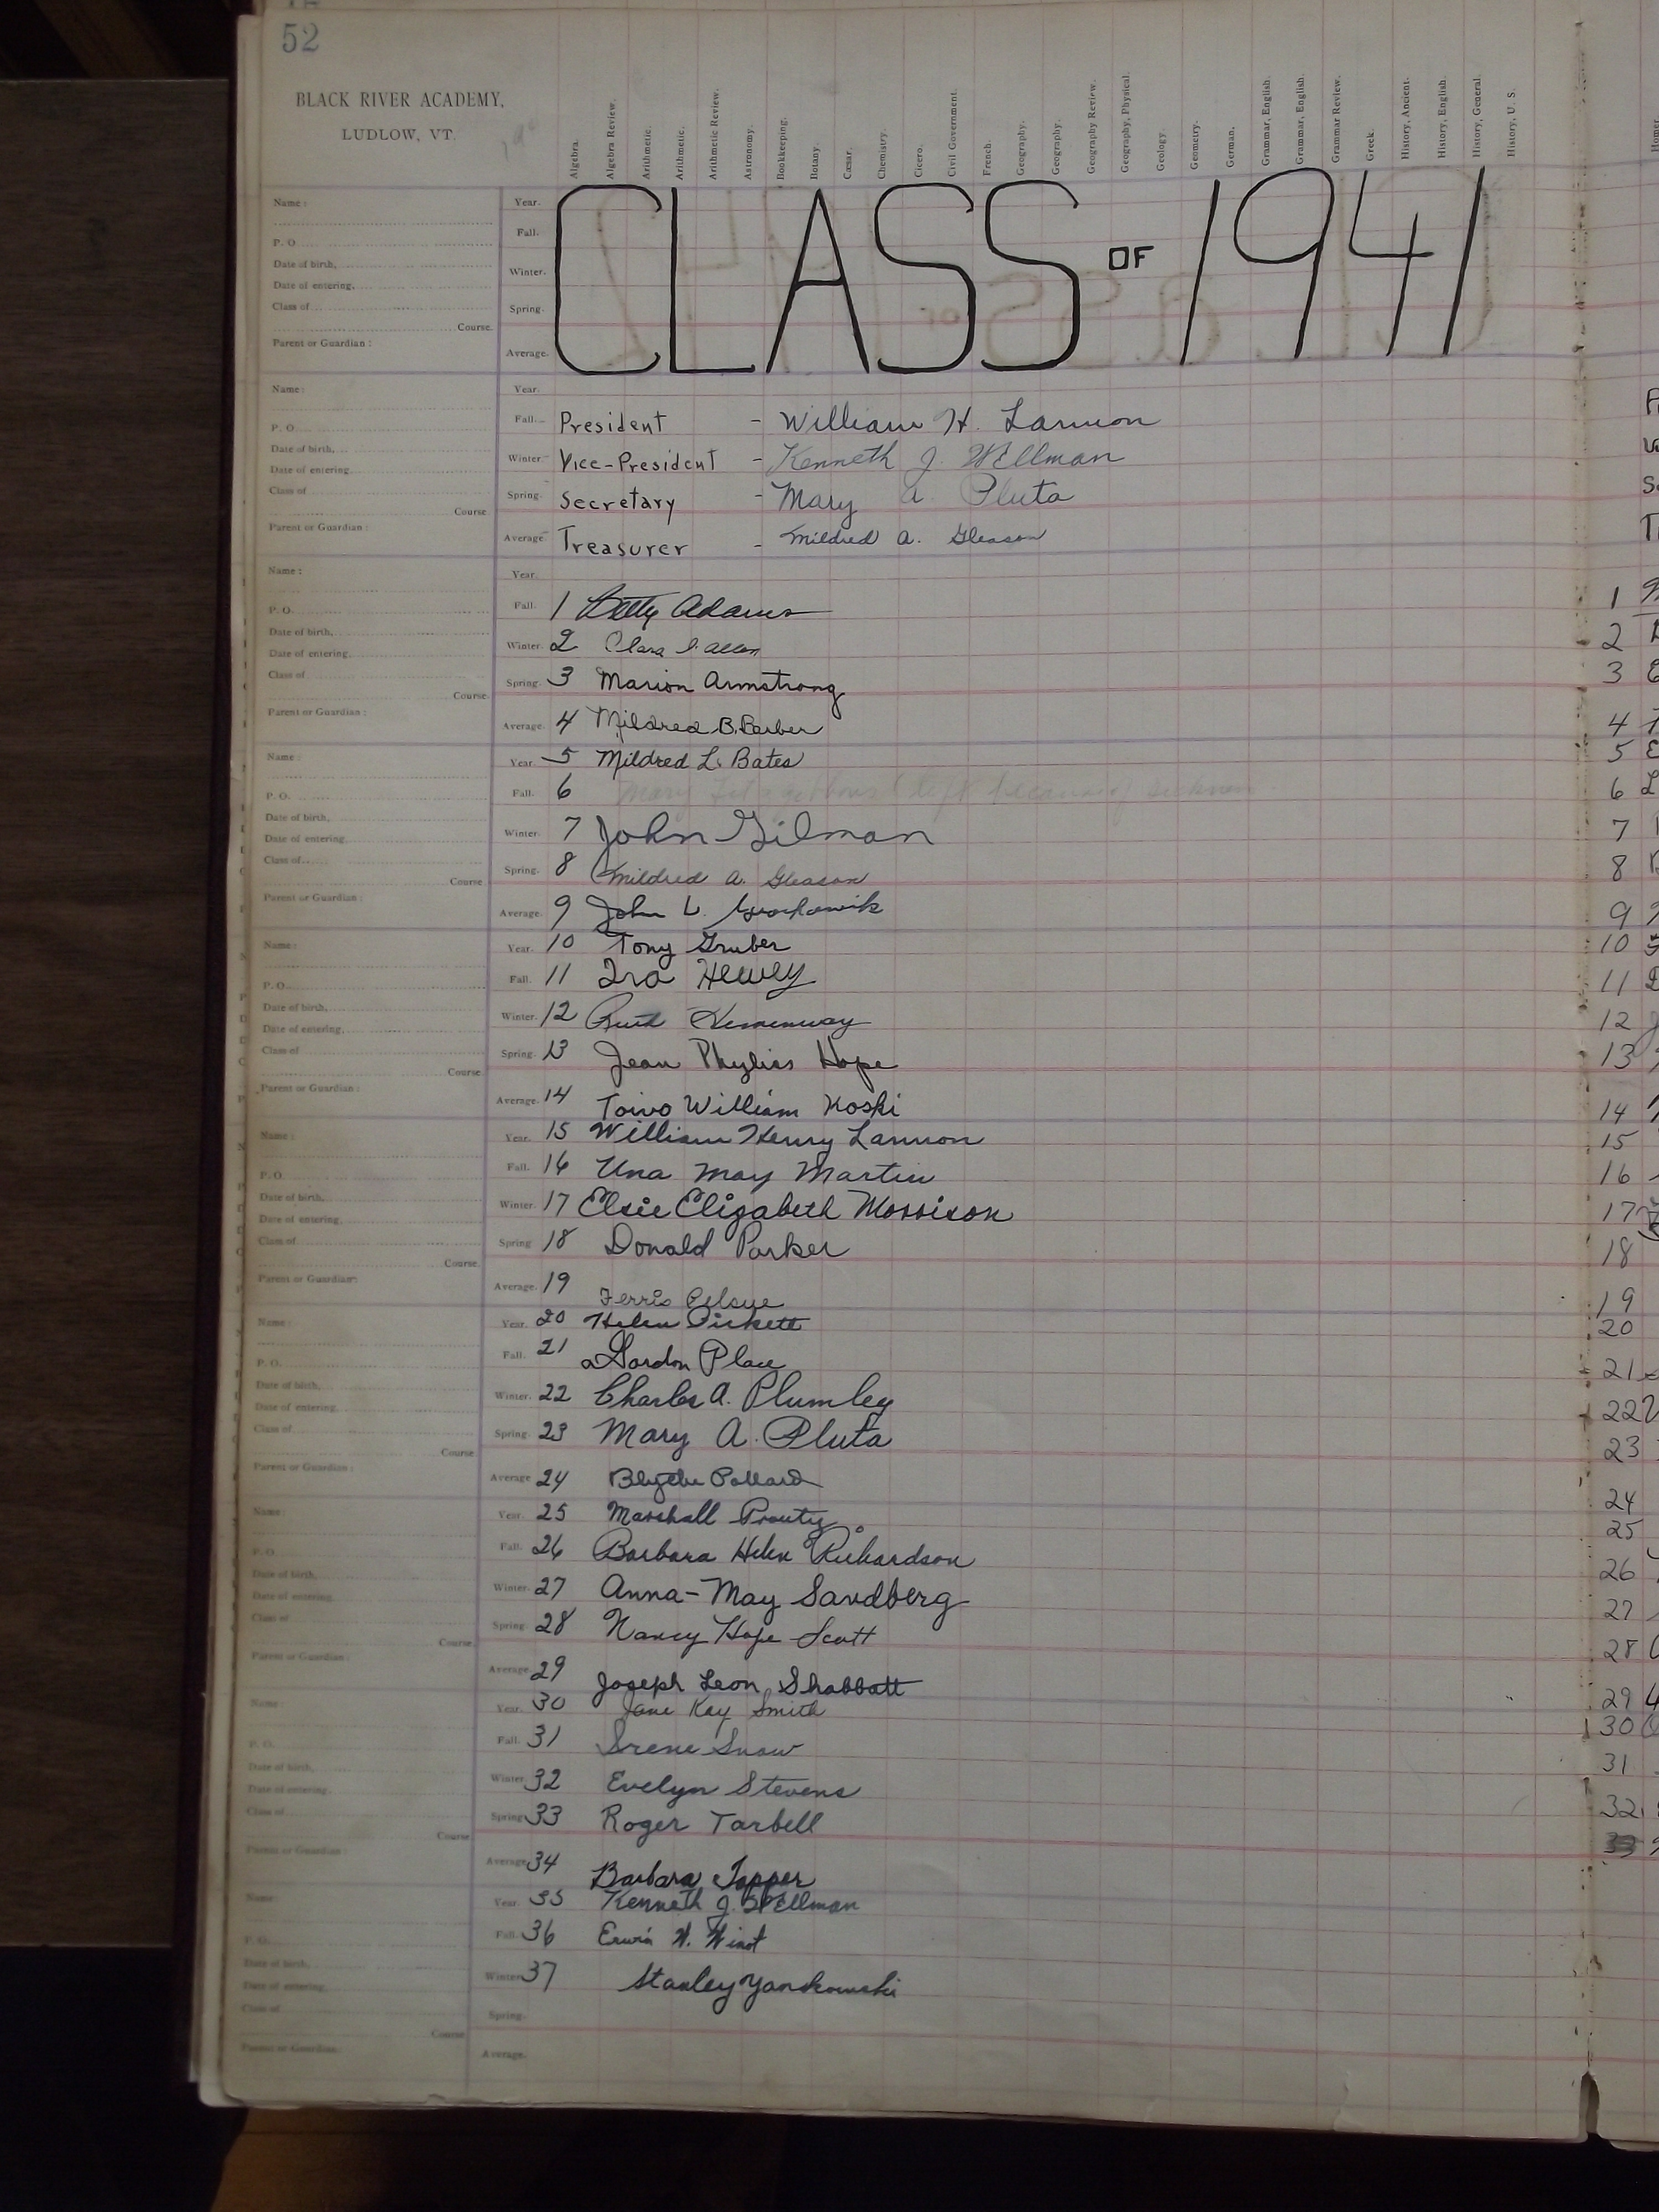 52
BLACK RIVER ACADEMY,
LUDLOW, VT.
Algebra.
Algebra Review.
Arithmetic.
Arithmetic.
Arithmetic Review.
Astronomy.
Bookkeeping.
Botany.
Cæsar.
Chemistry.
Cicero.
Civil Government.
French.
Geography.
Geography.
Geography Review.
Geography, Physical.
Geology.
Geometry.
German.
Grammar, English.
Grammar, English.
Grammar Review.
Greek.
History, Ancient.
History, English.
History, General.
History, U. S.
Homer.
Name:
P. O.
Date of birth,
Date of entering,
Class of
Course.
Parent or Guardian:
Year.
Fall.
Winter.
Spring.
Average.
CLASS OF 1941
President - William H. Lannon
Vice-President - Kenneth J. Wellman
Secretary - Mary A. Pluta
Treasurer - Mildred A. Gleason
1 Betty Adams
2 Clara I. Allen
3 Marion Armstrong
4 Mildred B. Barber
5 Mildred L. Bates
6 Mary Fitzgibbons (left because of sickness
7 John Gilman
8 Mildred A. Gleason
9 John L.
10 Tony Gruber
11 Ira Hewey
12 Ruth Hemenway
13 Jean Phyliss Hope
14 Toivo William Koski
15 William Henry Lannon
16 Una May Martin
17 Elsie Elizabeth Morrison
18 Donald Parker
19 Ferris Pelsue
20 Helen Pickett
21 Gordon Place
22 Charles A. Plumley
23 Mary A. Pluta
24 Blythe Pollard
25 Marshall Prouty
26 Barbara Helen Richardson
27 Anna-May Sandberg
28 Nancy Hope Scott
29 Joseph Leon Shabbott
30 Jane Kay Smith
31 Irene Snow
32 Evelyn Stevens
33 Roger Tarbell
34 Barbara Tapper
35 Kenneth J. Wellman
36 Erwin W. Winot
37 Stanley Yanskowski